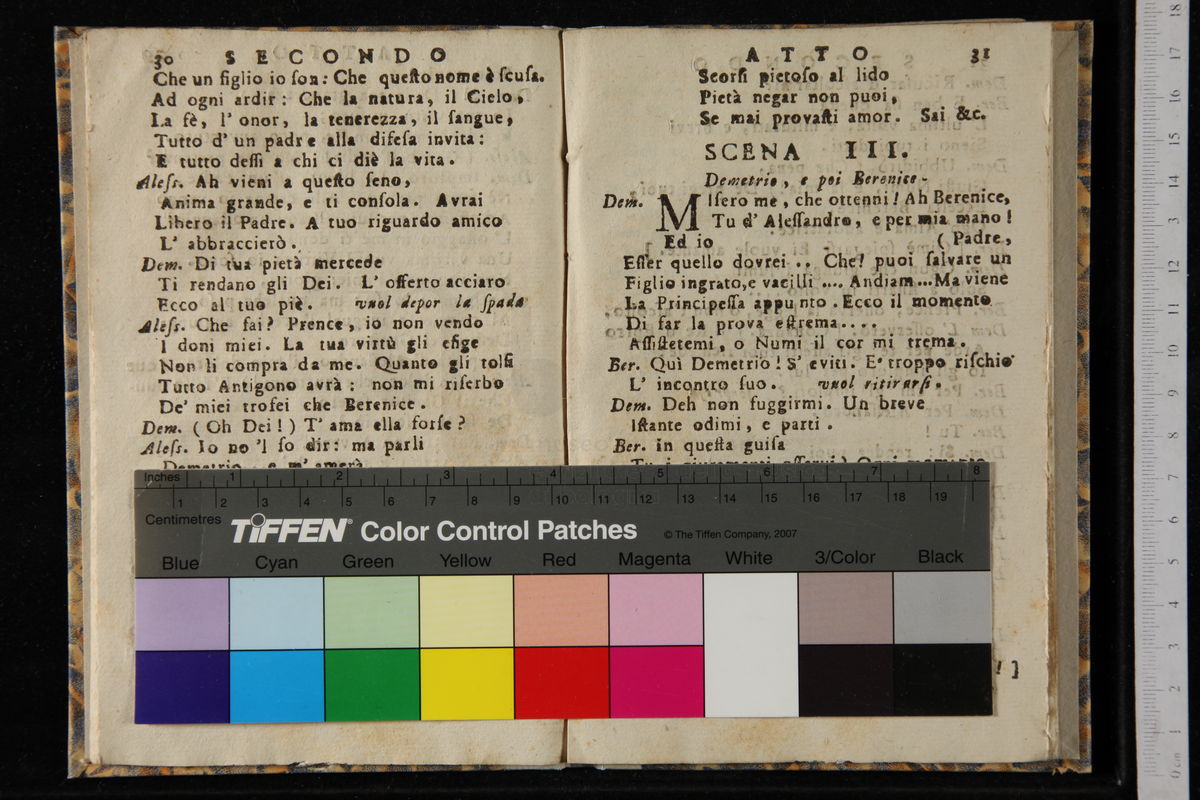 30 SECONDO
Che un figlio io ſon: Che queſto nome è ſcuſa.
Ad ogni ardir: Che la natura, il Cielo,
La fè, l' onor, la tenerezza, il ſangue,
Tutto d' un padre alla difeſa invita:
E tutto deſſi a chi ci diè la vita.
Aleſſ. Ah vieni a queſto ſeno,
Anima grande, e ti conſola. Avrai
Libero il Padre. A tuo riguardo amico
L' abbraccierò.
Dem. Di tua pietà mercede
Ti rendano gli Dei. L' offerto acciaro
Ecco al tuo piè. vuol depor la ſpada
Aleſſ. Che fai? Prence, io non vendo
I doni miei. La tua virtù gli eſige
Non li compra da me. Quanto gli tolſi
Tutto Antigono avrà: non mi riſerbo
De' miei trofei che Berenice.
Dem. (Oh Dei!) T' ama ella forſe?
Aleſſ. Io no 'l ſo dir: ma parli
Demetrio, e m' amerà
ATTO 31
Scorſi pietoſo al lido
Pietà negar non puoi,
Se mai provaſti amor. Sai &c.
SCENA III.
Demetrio, e poi Berenice.
Dem. MIſero me, che ottenni! Ah Berenice,
Tu d' Aleſſandro, e per mia mano!
Ed io (Padre,
Eſſer quello dovrei .. Che! puoi ſalvare un
Figlio ingrato, e vacilli .... Andiam...Ma viene
La Principeſſa appunto. Ecco il momento
Di far la prova eſtrema....
Aſſiſtetemi, o Numi il cor mi trema.
Ber. Quì Demetrio! S' eviti. E' troppo riſchio
L' incontro ſuo. vuol ritirarſi.
Dem. Deh non fuggirmi. Un breve
Iſtante odimi, e parti.
Ber. in queſta guiſa
! ]
Inches 1 2 3 4 5 6 7 8
1 2 3 4 5 6 7 8 9 10 11 12 13 14 15 16 17 18 19
Centimetres
TIFFEN® Color Control Patches © The Tiffen Company, 2007
Blue Cyan Green Yellow Red Magenta White 3/Color Black
0 cm 1 2 3 4 5 6 7 8 9 10 11 12 13 14 15 16 17 18